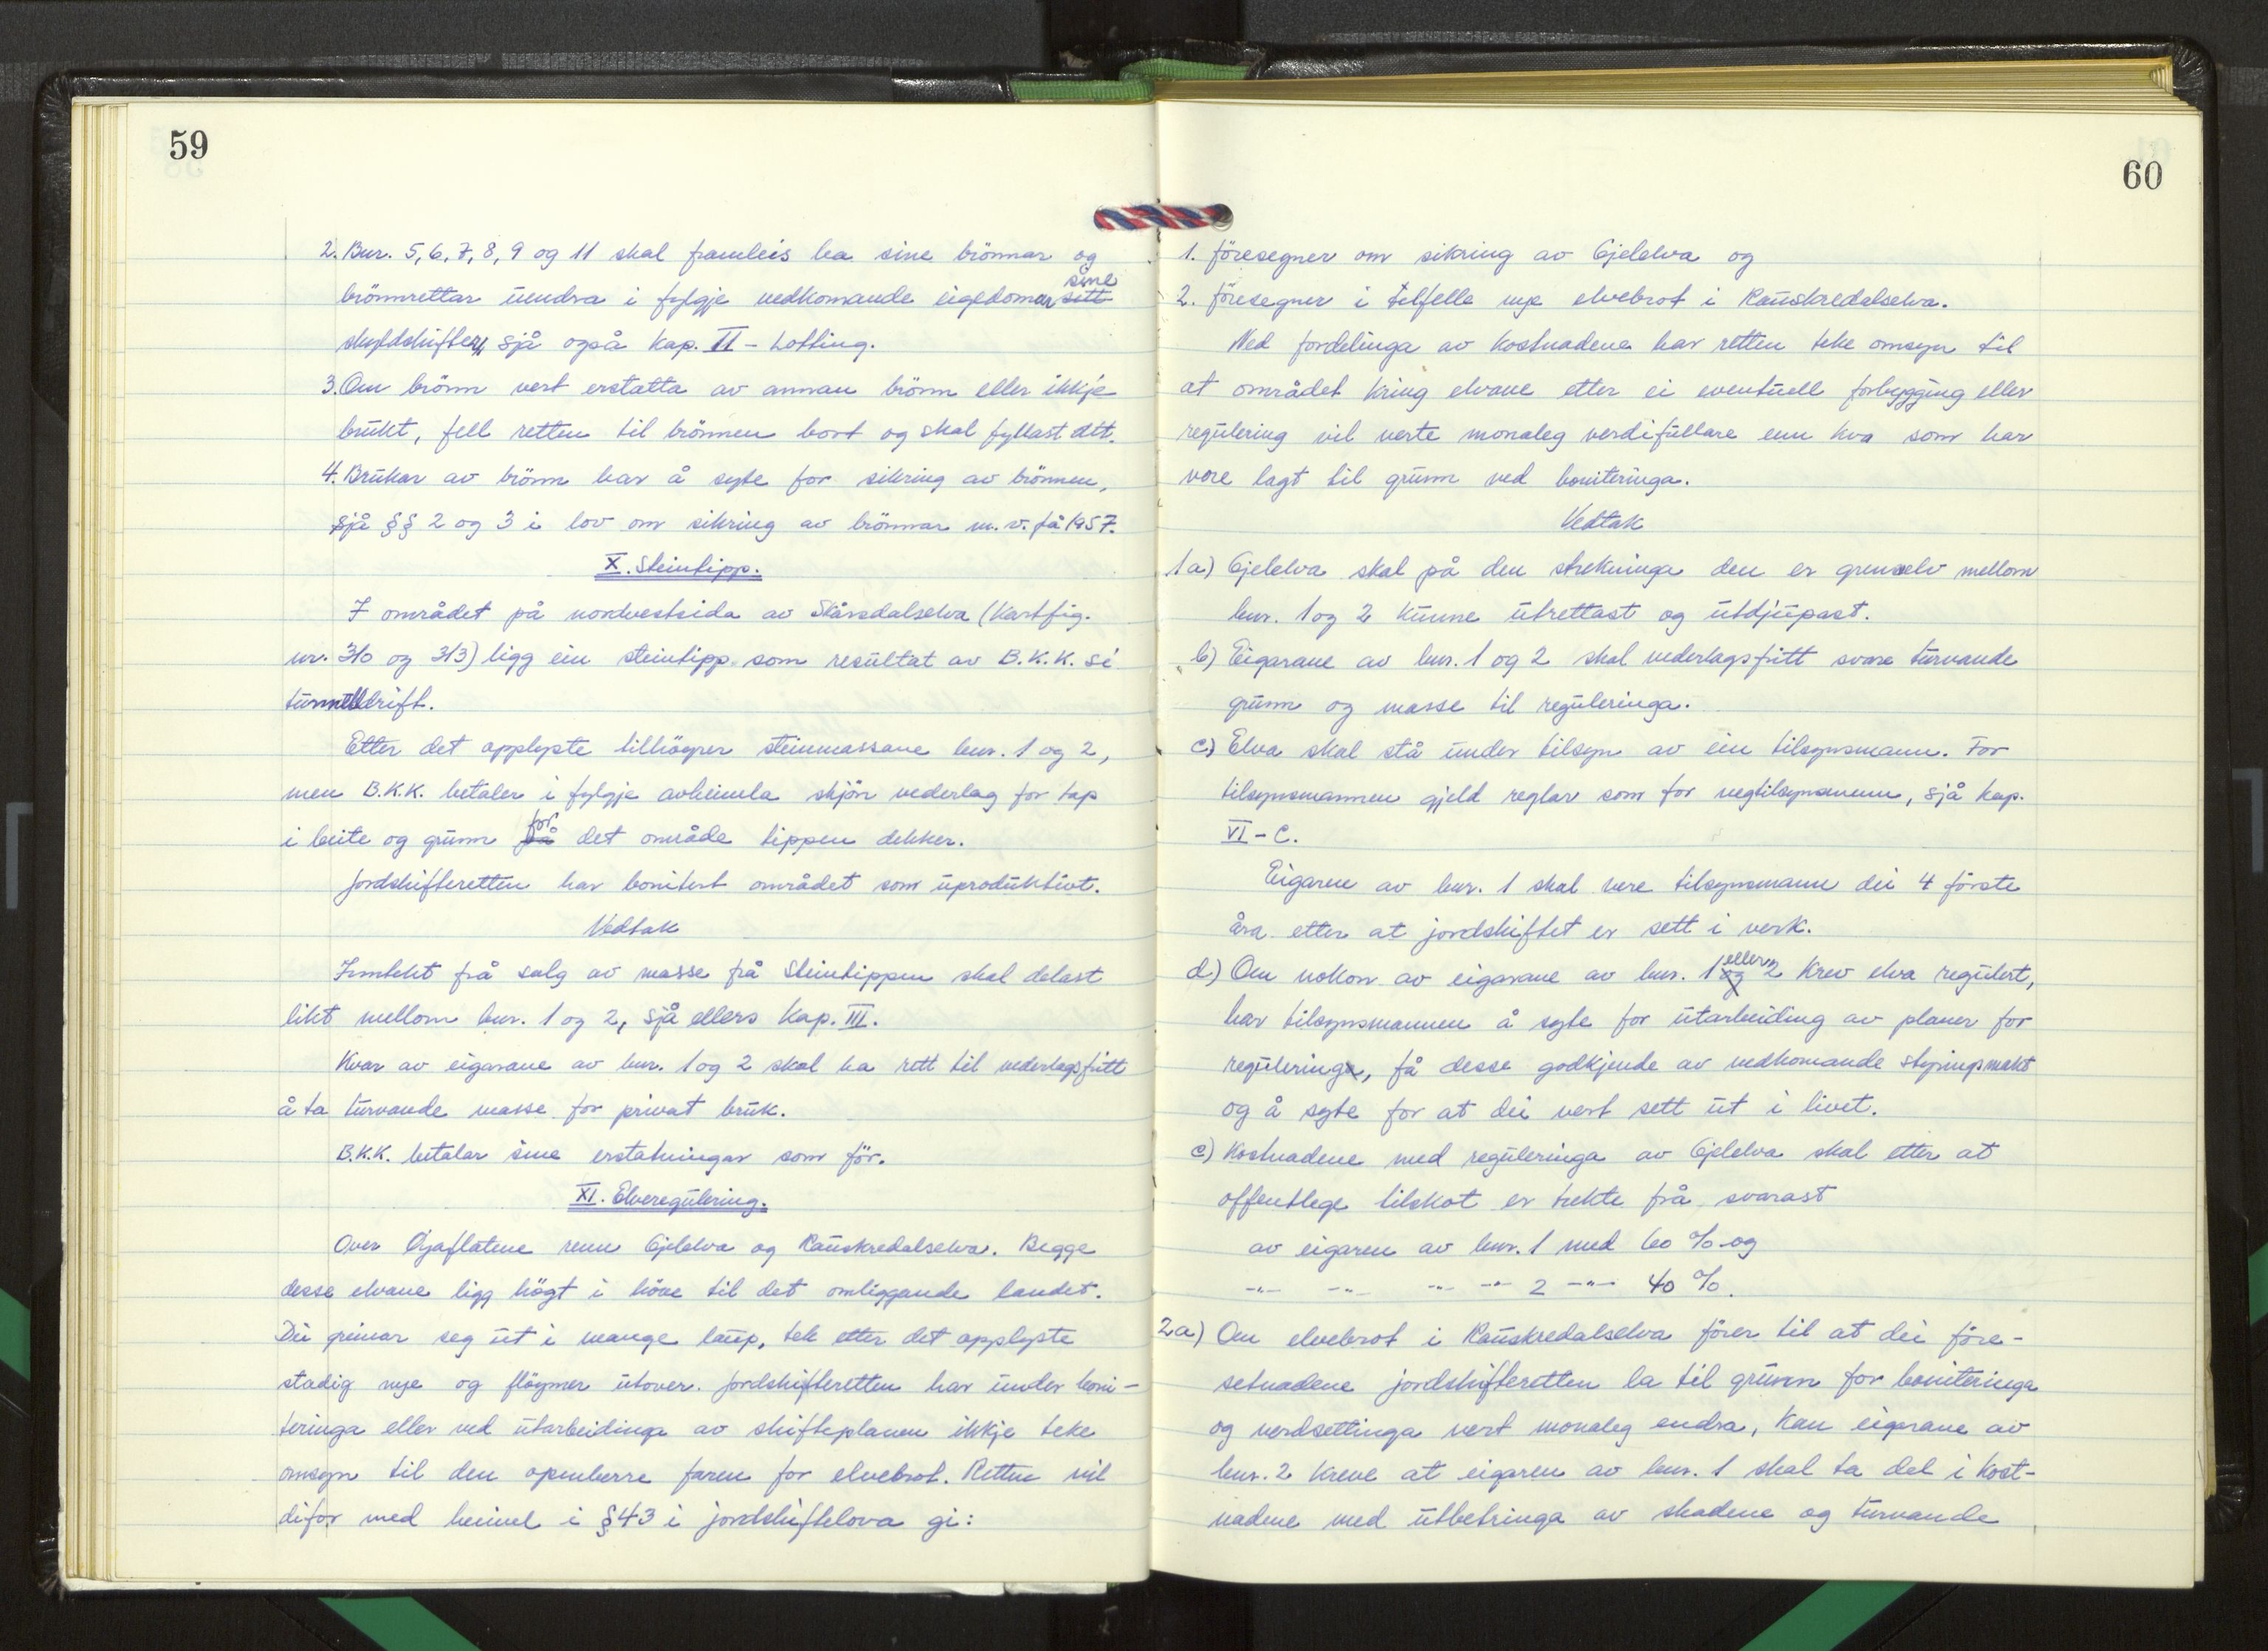 59
2. Bnr. 5, 6, 7, 8, 9 og 11 skal framleis ha sine brönnar og
brönnrettar uendra i fylgje vedkomande eigedomar sine
skyldskifter, sjå også kap. II - Lotting.
3. Om brönn vert erstatta av annan brönn eller ikkje
brukt, fell retten til brönnen bort og skal fyllast att.
4. Brukar av brönn har å syte for sikring av brönnen,
sjå §§ 2 og 3 i lov om sikring av brönnar m.v. frå 1957.
X. Steintipp.
I området på nordvestsida av Skårsdalselva (Kartfig.
nr. 310 og 313) ligg ein steintipp som resultat av B.K.K. si
tunnelldrift.
Etter det opplyste tilhöyrer steinmassane bnr. 1 og 2,
men B.K.K. betaler i fylgje avheimla skjön vederlag for tap
i beite og grunn for det område tippen dekker.
Jordskifteretten har bonitert området som uproduktivt.
Vedtak
Inntekt frå salg av masse frå steintippen skal delast
likt mellom bnr. 1 og 2, sjå ellers kap. III.
Kvar av eigarane av bnr. 1 og 2 skal ha rett til vederlagsfritt
å ta turvande masse for privat bruk.
B.K.K. betalar sine erstatningar som för.
XI. Elveregulering.
Over Öyaflatene renn Gjelelva og Rauskredalselva. Begge
desse elvane ligg högt i höve til det omliggande landet.
Dei greinar seg ut i mange laup, tek etter det opplyste
stadig nye og flöymer utover. Jordskifteretten har under boni-
teringa eller ved utarbeidinga av skifteplanen ikkje teke
omsyn til den openberre faren for elvebrot. Retten vil
difor med heimel i § 43 i jordskiftelova gi:
60
1. föresegner om sikring av Gjelelva og
2. föresegner i tilfelle nye elvebrot i Rauskredalselva.
Ved fordelinga av kostnadene har retten teke omsyn til
at området kring elvane etter ei eventuell forbygging eller
regulering vil verte monaleg verdifullare enn kva som har
vore lagt til grunn ved boniteringa.
Vedtak
1a) Gjelelva skal på den strekninga den er grenselv mellom
bnr. 1 og 2 kunne utrettast og utdjupast.
b) Eigarane av bnr. 1 og 2 skal vederlagsfritt svare turvande
grunn og masse til reguleringa.
c) Elva skal stå under tilsyn av ein tilsynsmann. For
tilsynsmannen gjeld reglar som for vegtilsynsmenn, sjå kap.
VI - C.
Eigaren av bnr. 1 skal vere tilsynsmann dei 4 förste
åra etter at jordskiftet er sett i verk.
d) Om nokon av eigarane av bnr. 1 eller 2 krev elva regulert,
har tilsynsmannen å syte for utarbeiding av planer for
regulering, få desse godkjende av vedkomande styringsmakt
og å syte for at dei vert sett ut i livet.
e) Kostnadene med reguleringa av Gjelelva skal etter at
offentlege tilskot er trekte frå svarast
av eigaren av bnr. 1 med 60 % og
-"- -"- -"- -"- 2 -"- 40 %.
2a) Om elvebrot i Rauskredalselva förer til at dei före-
setnadene jordskifteretten la til grunn for boniteringa
og verdsettinga vert monaleg endra, kan eigarane av
bnr. 2 kreve at eigaren av bnr. 1 skal ta del i kost-
nadene med utbetringa av skadene og turvande